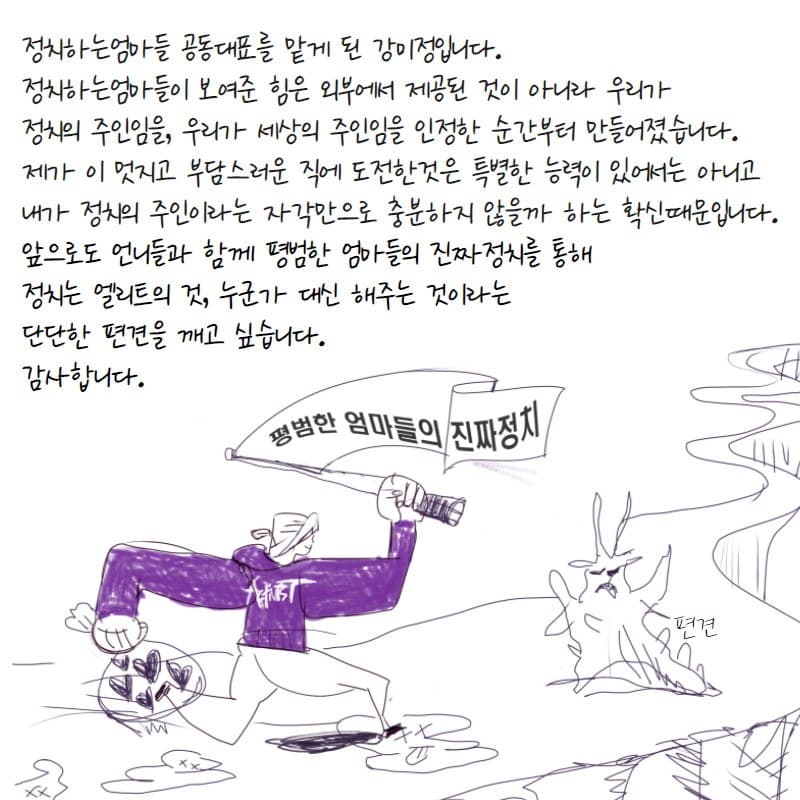 정치하는엄마들 공동대표를 맡게 된 강미정입니다.
정치하는엄마들이 보여준 힘은 외부에서 제공된 것이 아니라 우리가
정치의 주인임을, 우리가 세상의 주인임을 인정한 순간부터 만들어졌습니다.
제가 이 멋지고 부담스러운 직에 도전한것은 특별한 능력이 있어서는 아니고
내가 정치의 주인이라는 자각만으로 충분하지 않을까 하는 확신때문입니다.
앞으로도 언니들과 함께 평범한 엄마들의 진짜정치를 통해
정치는 엘리트의 것, 누군가 대신 해주는 것이라는
단단한 편견을 깨고 싶습니다.
감사합니다.
평범한 엄마들의 진짜정치
편견